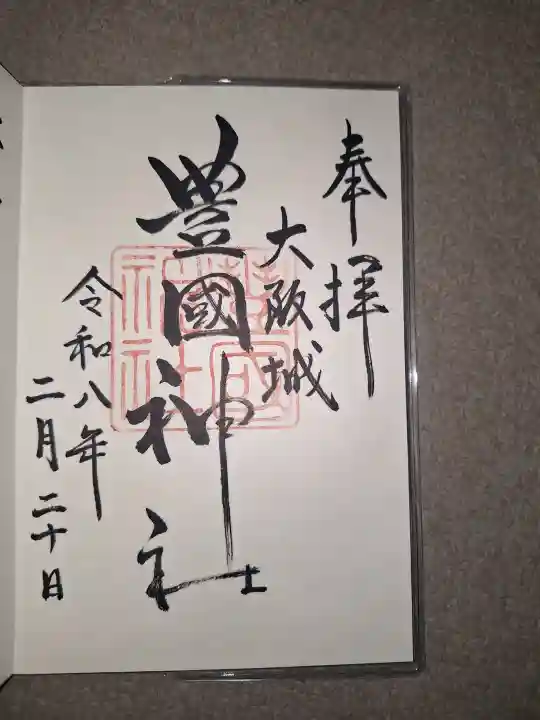 奉拝
大阪城
豊國神社
豊國神社
令和八年
二月二十日